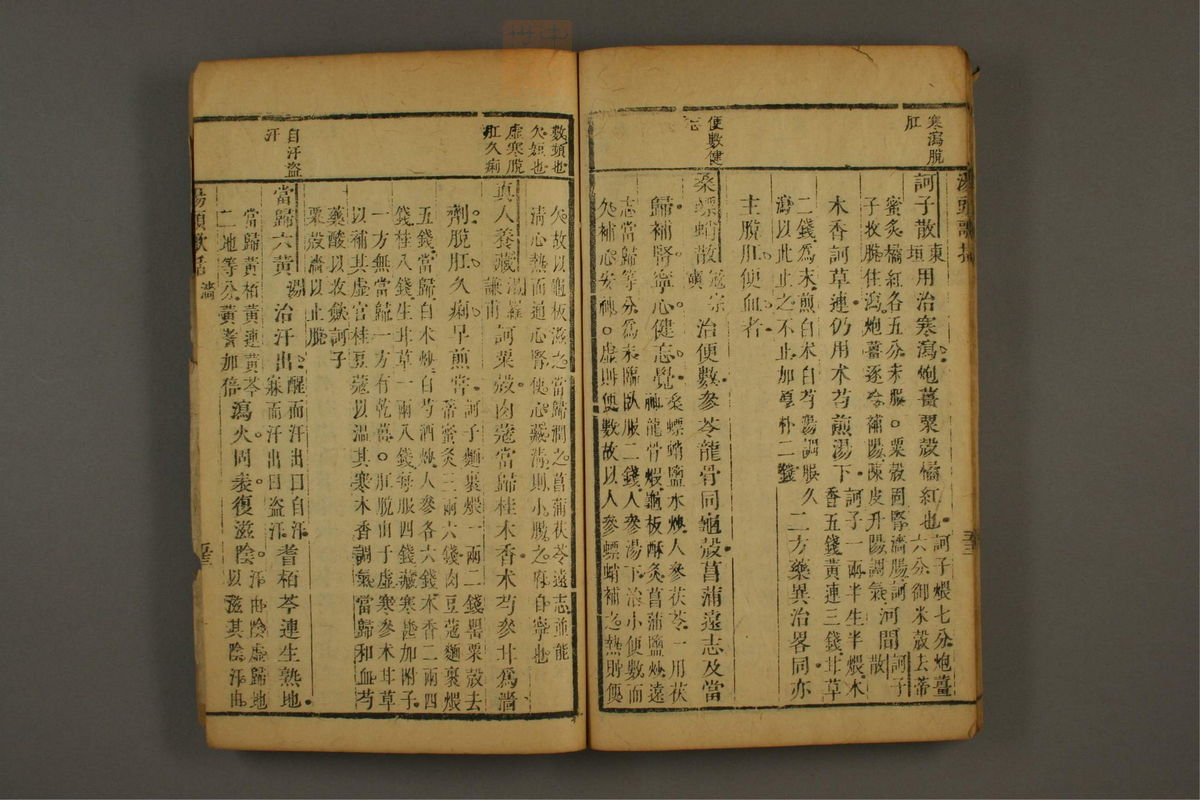 寒瀉脫
肛
訶子散東垣用治寒瀉炮薑粟殼橘紅也訶子煨七分炮薑六分御米殼去蒂
蜜炙橘紅各五分末服○粟殼固腎濇腸訶
子收脫住瀉炮薑逐冷補陽陳皮升陽調氣河間訶子散
木香訶草連仍用朮芍煎湯下訶子一兩半生半煨木香五錢黃連三錢甘草
二錢為末煎白朮白芍湯調服久
瀉以此止之不止加厚朴二錢二方藥異治畧同亦
主脫肛便血者
便數健
忘
桑螵蛸散寇宗奭治便數參苓龍骨同龜殼菖蒲遠志及當
歸補腎寧心健忘覺桑螵蛸鹽水炒人參茯苓一用茯神龍骨煅龜板酥炙菖蒲鹽炒遠
志當歸等分為末臨臥服二錢人參湯下治小便數而
欠補心安神○虛則便數故以人參螵蛸補之熱則便
數頻也
欠短也
虛寒脫
肛久痢
欠故以龜板滋之當歸潤之菖蒲茯苓遠志並能
清心熱而通心腎使心臟清則小腸之府自寧也
真人養臟湯羅謙甫訶粟殼肉蔻當歸桂木香朮芍參甘為濇
劑脫肛久痢早煎嘗訶子麵裹煨一兩二錢罌粟殼去蒂蜜炙三兩六錢肉豆蔻麵裹煨
五錢當歸白朮炒白芍酒炒人參各六錢木香二兩四
錢桂八錢生甘草一兩八錢每服四錢臟寒甚加附子
一方無當歸一方有乾薑○肛脫由于虛寒參朮甘草
以補其虛官桂豆蔻以溫其寒木香調氣當歸和血芍
藥酸以收斂訶子
粟殼濇以止脫
自汗盜
汗
當歸六黃湯治汗出醒而汗出曰自汗寐而汗出曰盜汗耆柏苓連生熟地
當歸黃柏黃連黃芩
二地等分黃耆加倍瀉火固表復滋陰汗由陰虛歸地以滋其陰汗由
湯頭歌括
濇